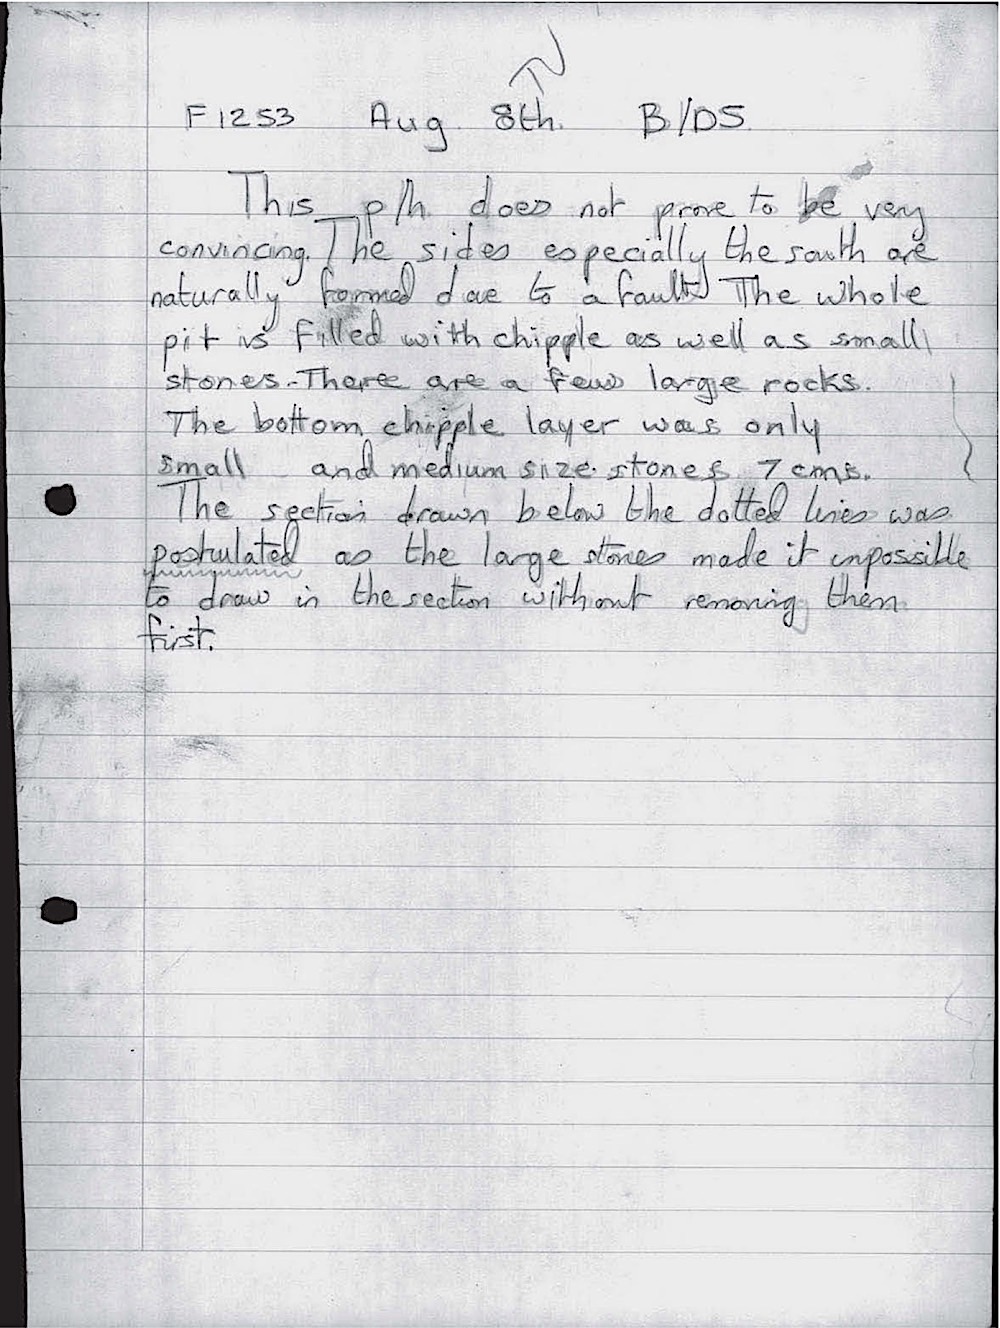 F1253 Aug 8th. B/DS
This p/h does not prove to be very
convincing. The sides especially the south are
naturally formed due to a fault. The whole
pit is filled with chipple as well as small
stones. There are a few large rocks.
The bottom chipple layer was only
small and medium size stones 7 cms.
The section drawn below the dotted lines was
postulated as the large stones made it impossible
to draw in the section without removing them
first.